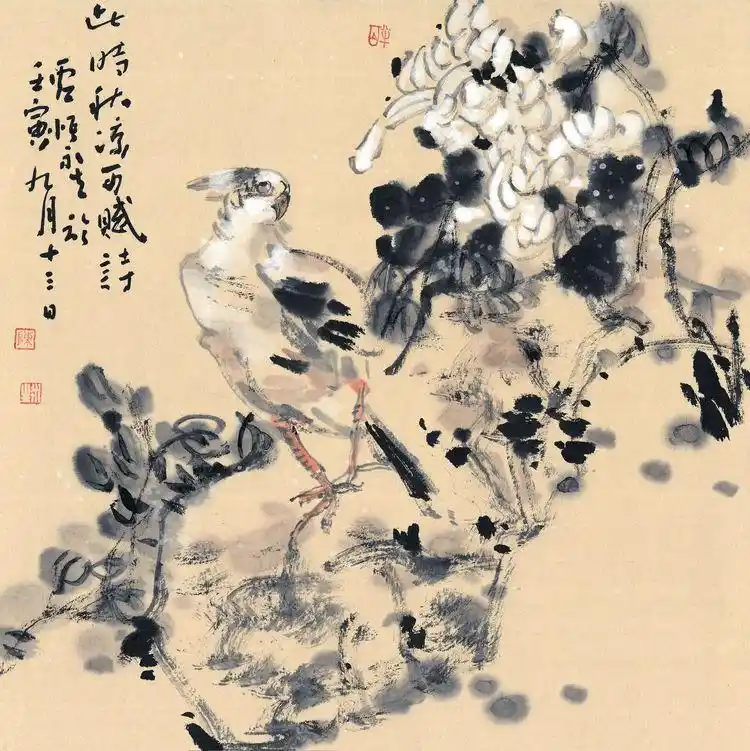 此時秋涼可賦詩
恒 於
壬寅九月十三日